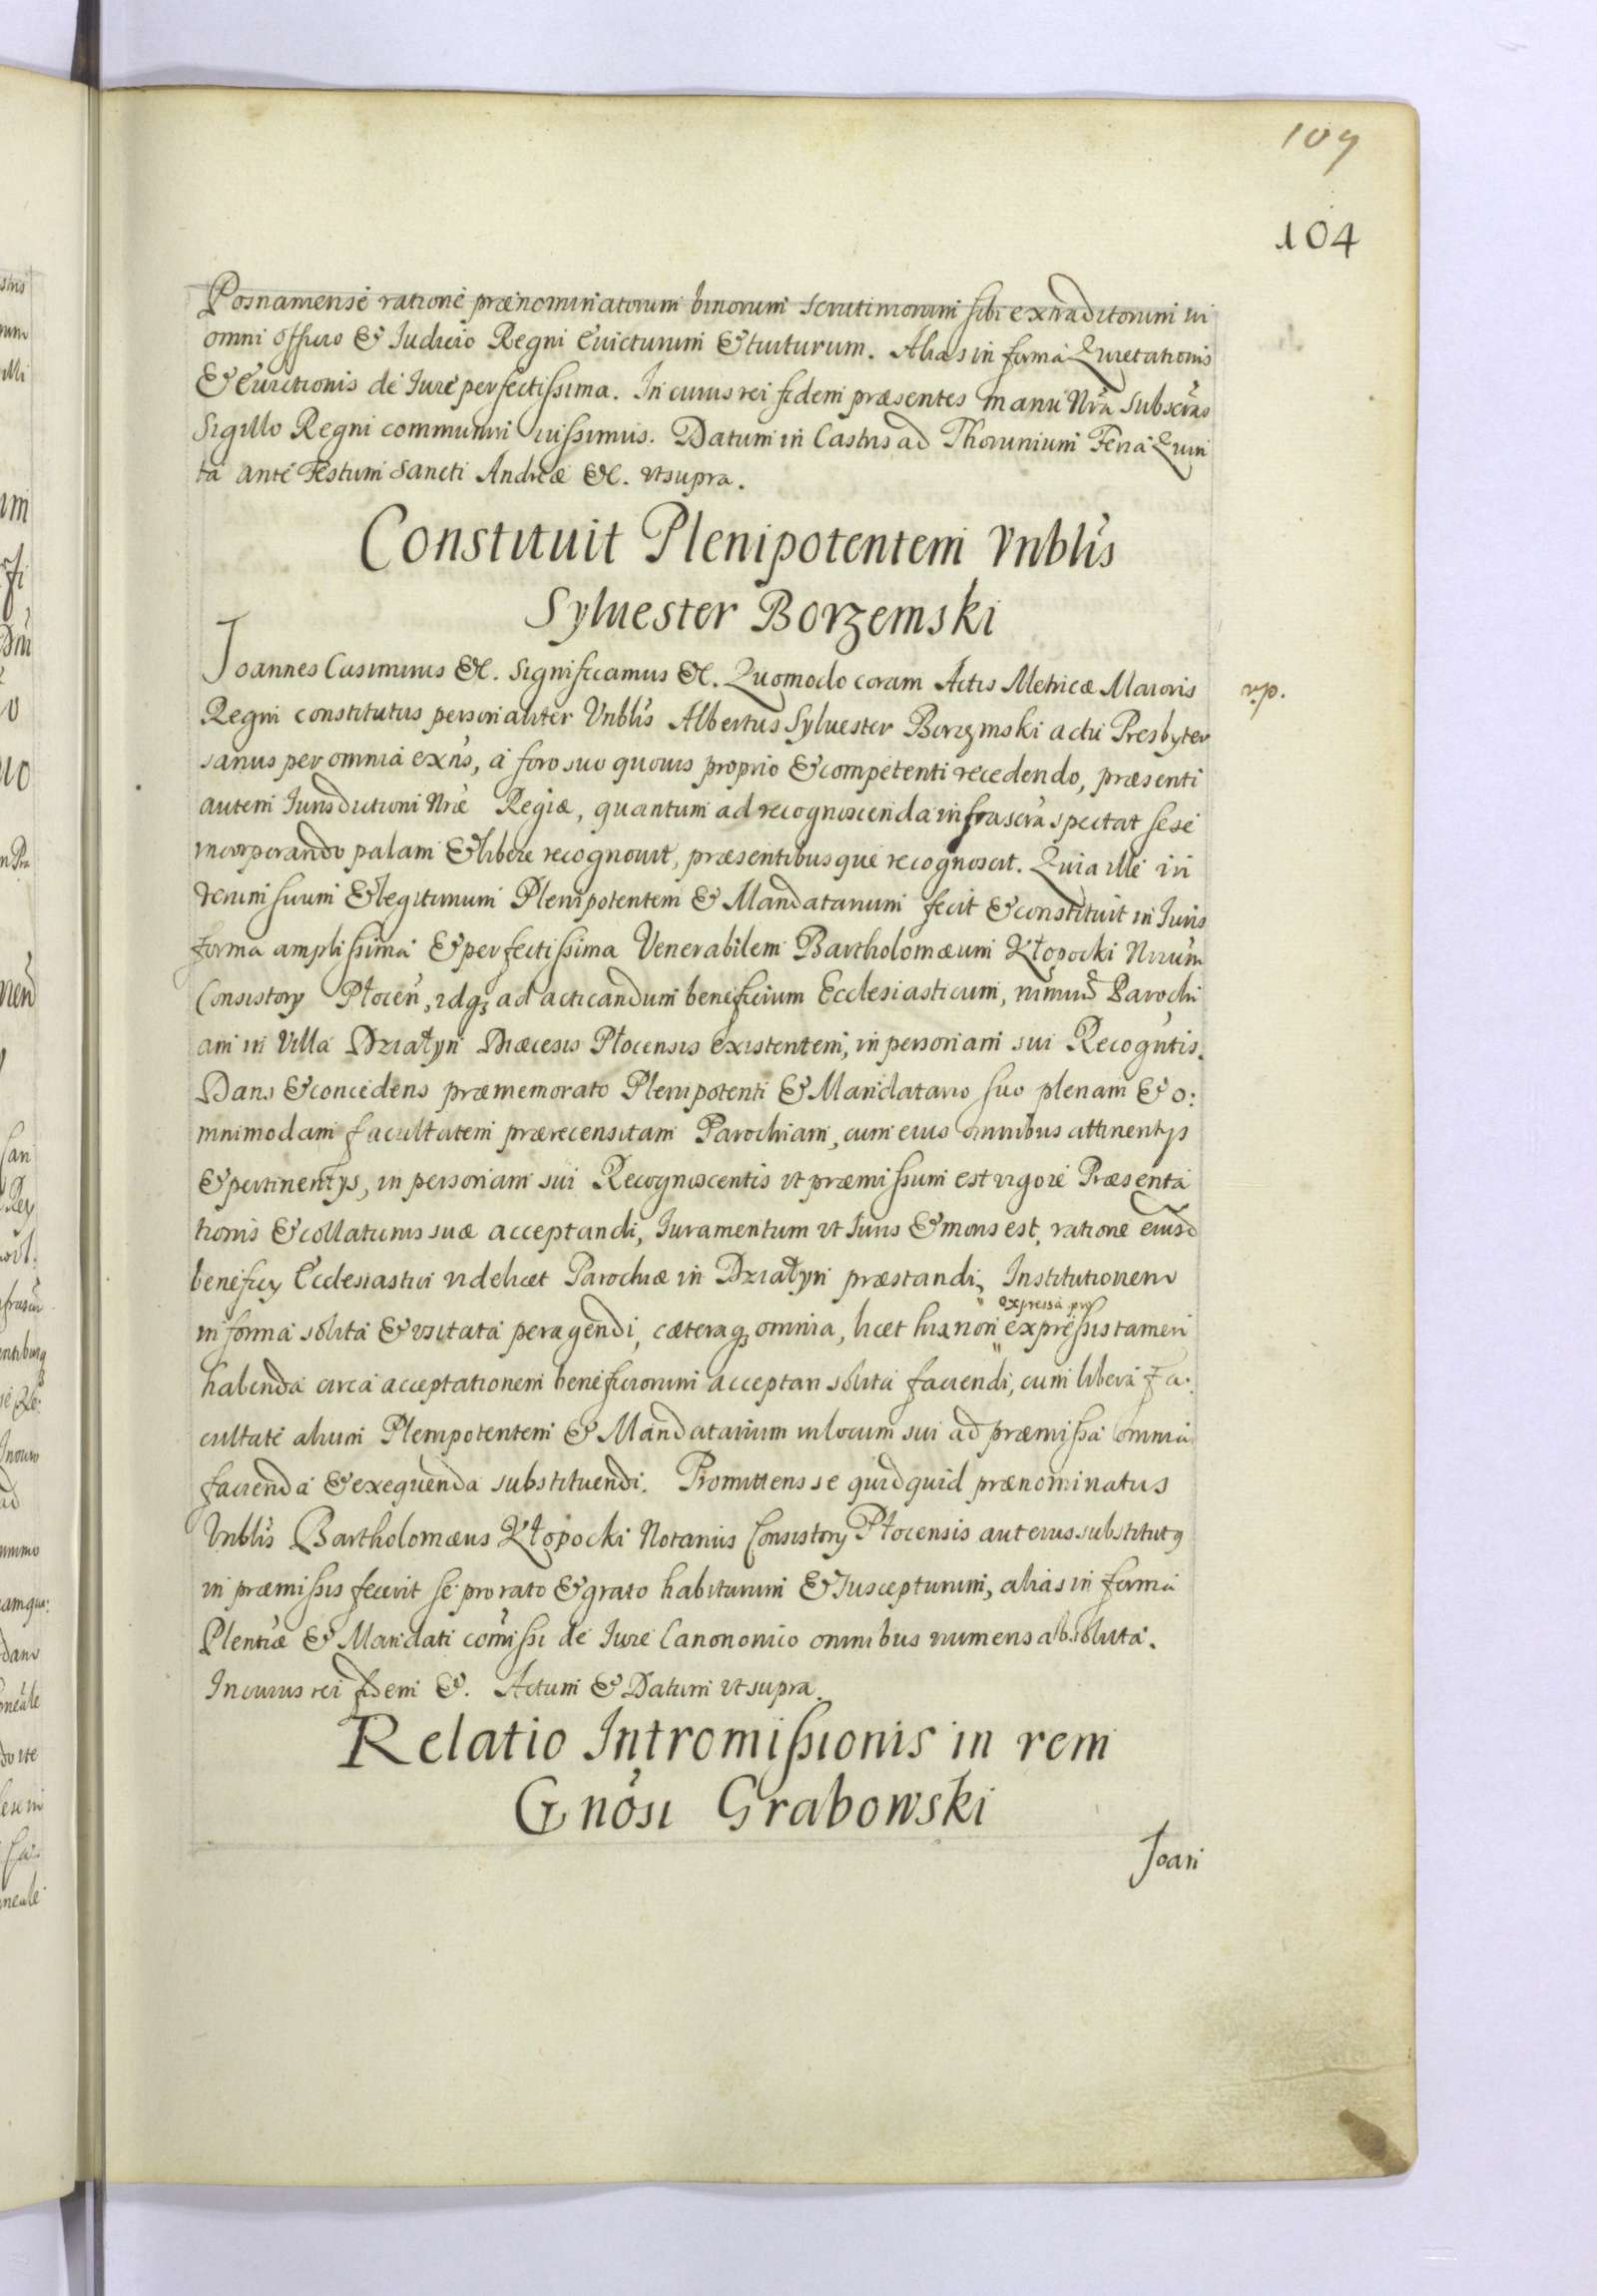 109
104
Posnaniensé rationé prænominatorum binorum scrutiniorum sibi extraditorum in
omni officio & Iudicio Regni Euicturum & tuiturum. Alias in formá Quietationis
& Euictionis dé Iuré perfectissima. In cuius rei fidem præsentes manu Nrã subscrãs
Sigillo Regni communiri iussimus. Datum in Castris ad Thorunium Feriá Quin
tá anté Festum Sancti Andreæ &c. vt supra.
Constituit Plenipotentem Vnblis
Syluester Borzemski
Joannes Casimirus &c. Significamus &c. Quomodo coram Actis Metricæ Maioris
rp.
Regni constitutus personaliter Vnblis Albertus Syluester Borzymski actu Presbyter
sanus per omnia exñs, á foro suo quouis proprio & competenti recedendo, præsenti
autem Iurisdictioni Nræ Regiæ, quantum ad recognoscenda infrascrã spectat sesé
incorporando palam & liberé recognouit, præsentibusqué recognoscit. Quia illé in
rerum suum & legitimum Plenipotentem & Mandatarium fecit & constituit in Iuris
formá amplissimá & perfectissima Venerabilem Bartholomæum Kłopocki Nrium
Consistory Płoceñ, idq3 ad acticandum beneficium Ecclesiasticum, nimirũ Parochi
am in Villá Działyn Diæcesis Płocensis existentem, in personam sui Recogñtis.
Dans & concedens præmemorato Plenipotenti & Mandatario suo plenam & o:
mnimodam facultatem prærecensitam Parochiam, cum eius omnibus attinentijs
& pertinentijs, in personam sui Recognoscentis vt præmissum est vigoré Præsentá
tionis & collationis suæ acceptandi, Iuramentum vt Iuris & moris est, ratione eiusd
beneficy Ecclesiastici videlicet Parochiæ in Działyn præstandi, Institutionem
expressá pro
in formá solitá & vsitatá peragendi, cæteraq3 omnia, licet hic non expressis tamen
habenda circá acceptationem beneficiorum acceptari solitá faciendi, cum liberá Fa:
cultaté alium Plenipotentem & Mandatarium in locum sui ad præmissá omnia
faciendá & exequenda substituendi. Promittens se quidquid prænominatus
Vnblis Bartholomæus Kłopocki Notarius Consistory Płocensis aut eius substitutq
in præmissis fecerit sé pro rato & grato habiturum & suscepturum, aliás in formá
Plentiæ & Mandati cõmissi dé Iuré Canononico omnibus numeris absolutá.
In cuius rei fidem &. Actum & Datum vt supra.
Relatio Intromissionis in rem
Gnõsi Grabowski
Joan